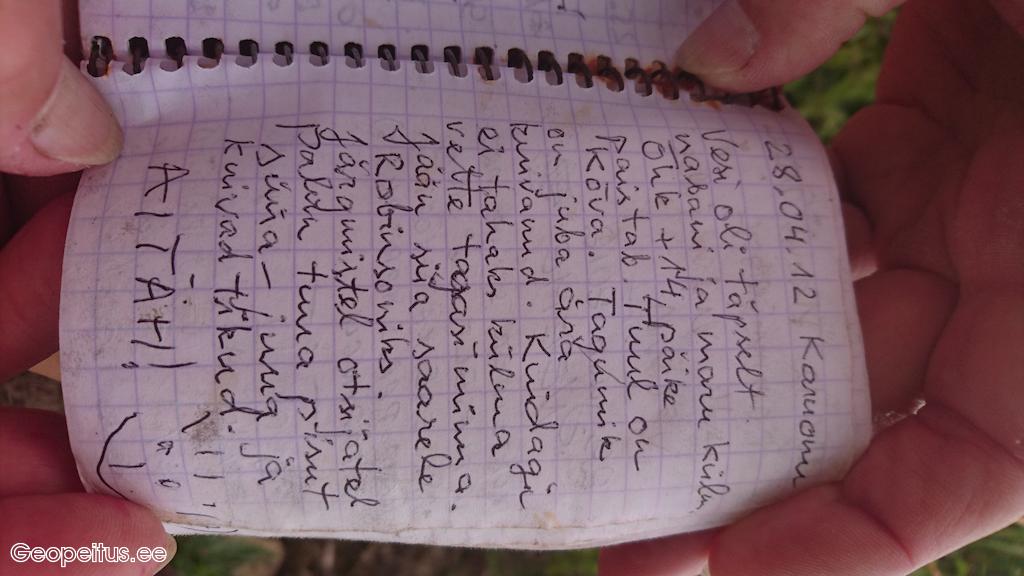 28.04.12 Karumõmm
Vesi oli täpselt
nabani ja
Õhk +14, päike
paistab. Tuul on
kõva. Tagumik
on juba ära
kuivanud. Kuidagi
ei tahaks külma
vette tagasi minna.
Jään siia saarele
Robinsoniks.
Järgmistel otsijatel
palun tuua pisut
süüa- juua ja
kuivad tikud.
AITÄH!
Geopeitus.ee